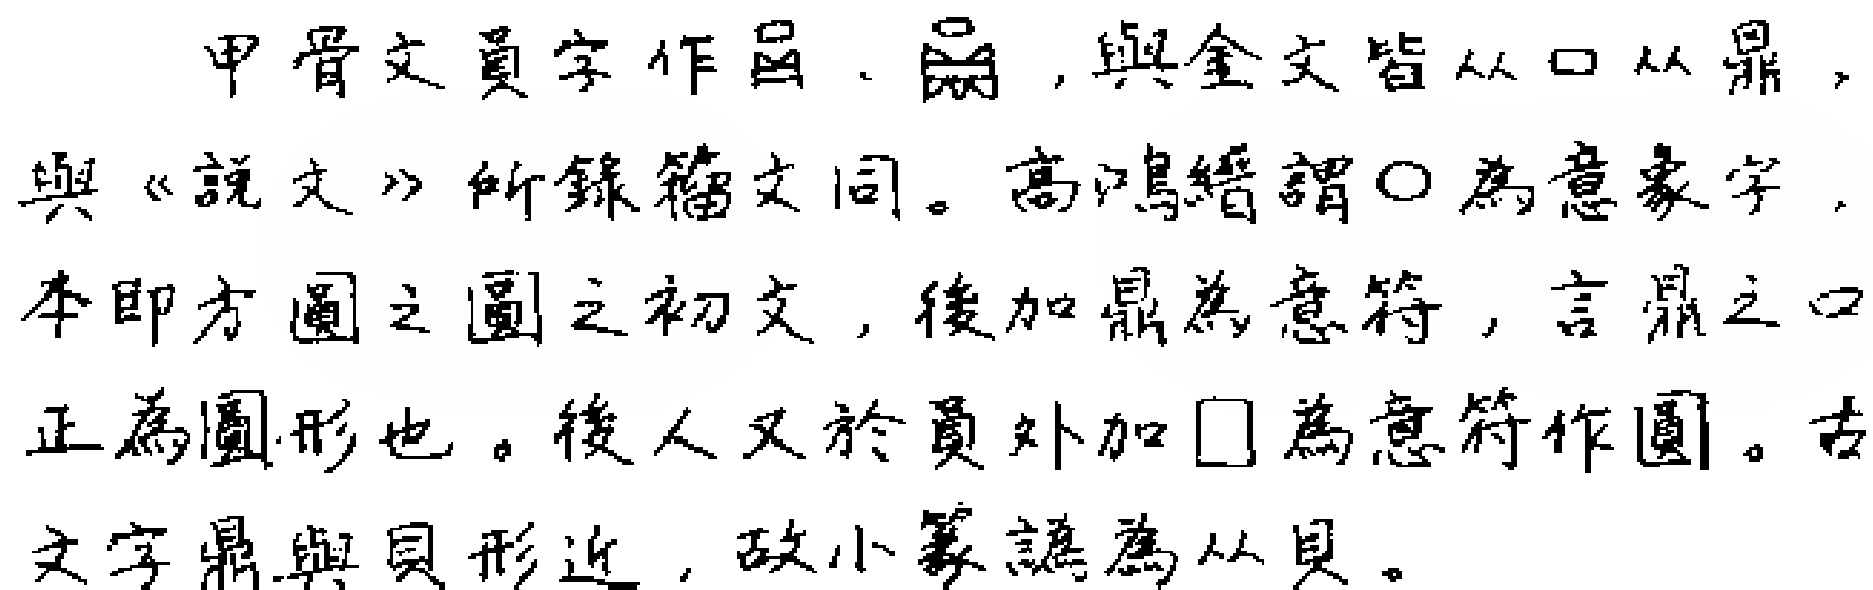 甲骨文員字作、，與金文皆从口从鼎，
與《說文》所錄籀文同。高鴻縉謂○為意象字，
本即方圓之圓之初文，後加鼎為意符，言鼎之口
正為圓形也。後人又於員外加囗為意符作圓。古
文字鼎與貝形近，故小篆譌為从貝。